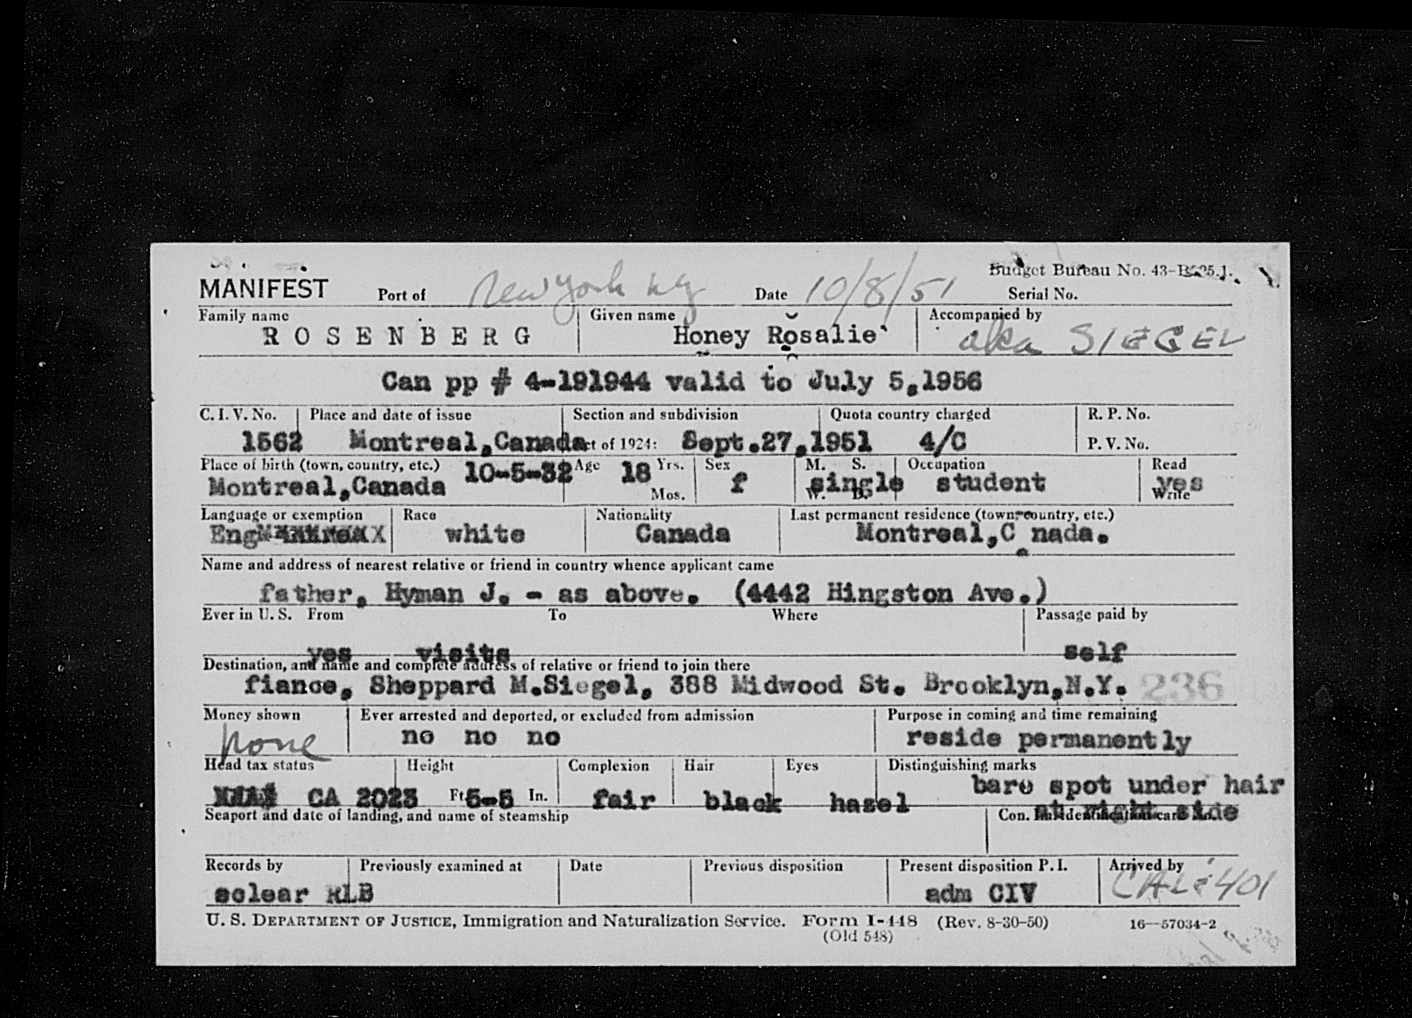 Budget Bureau No. 43-R
MANIFEST Port of New York NY Date 10/8/51 Serial No.
Family name Given name Accompanied by
ROSENBERG Honey Rosalie aka SIEGEL
Can pp # 4-191944 valid to July 5,1956
C. I. V. No. Place and date of issue Section and subdivision Quota country charged R. P. No.
1562 Montreal,Canada Act of 1924: Sept.27,1951 4/C P. V. No.
Place of birth (town, country, etc.) 10-5-32 Age 18 Yrs. Sex M. S. Occupation Read
Montreal,Canada Mos. f single W. D. student yes Write
Language or exemption Race Nationality Last permanent residence (town, country, etc.)
Eng white Canada Montreal,C nada.
Name and address of nearest relative or friend in country whence applicant came
father, Hyman J. - as above. (4442 Hingston Ave.)
Ever in U. S. From To Where Passage paid by
yes visits self
Destination, and name and complete address of relative or friend to join there
fiance, Sheppard M.Siegel, 388 Midwood St. Brooklyn,N.Y. 236
Money shown Ever arrested and deported, or excluded from admission Purpose in coming and time remaining
none no no no reside permanently
Head tax status Height Complexion Hair Eyes Distinguishing marks
CA 2023 Ft. 5-5 In. fair black hazel bare spot under hair
at right side
Seaport and date of landing, and name of steamship Con.
Records by Previously examined at Date Previous disposition Present disposition P. I. Arrived by
sclear RLB adm CIV 401
U. S. DEPARTMENT OF JUSTICE, Immigration and Naturalization Service. Form I-448 (Rev. 8-30-50) 16—57034-2
(Old 548)